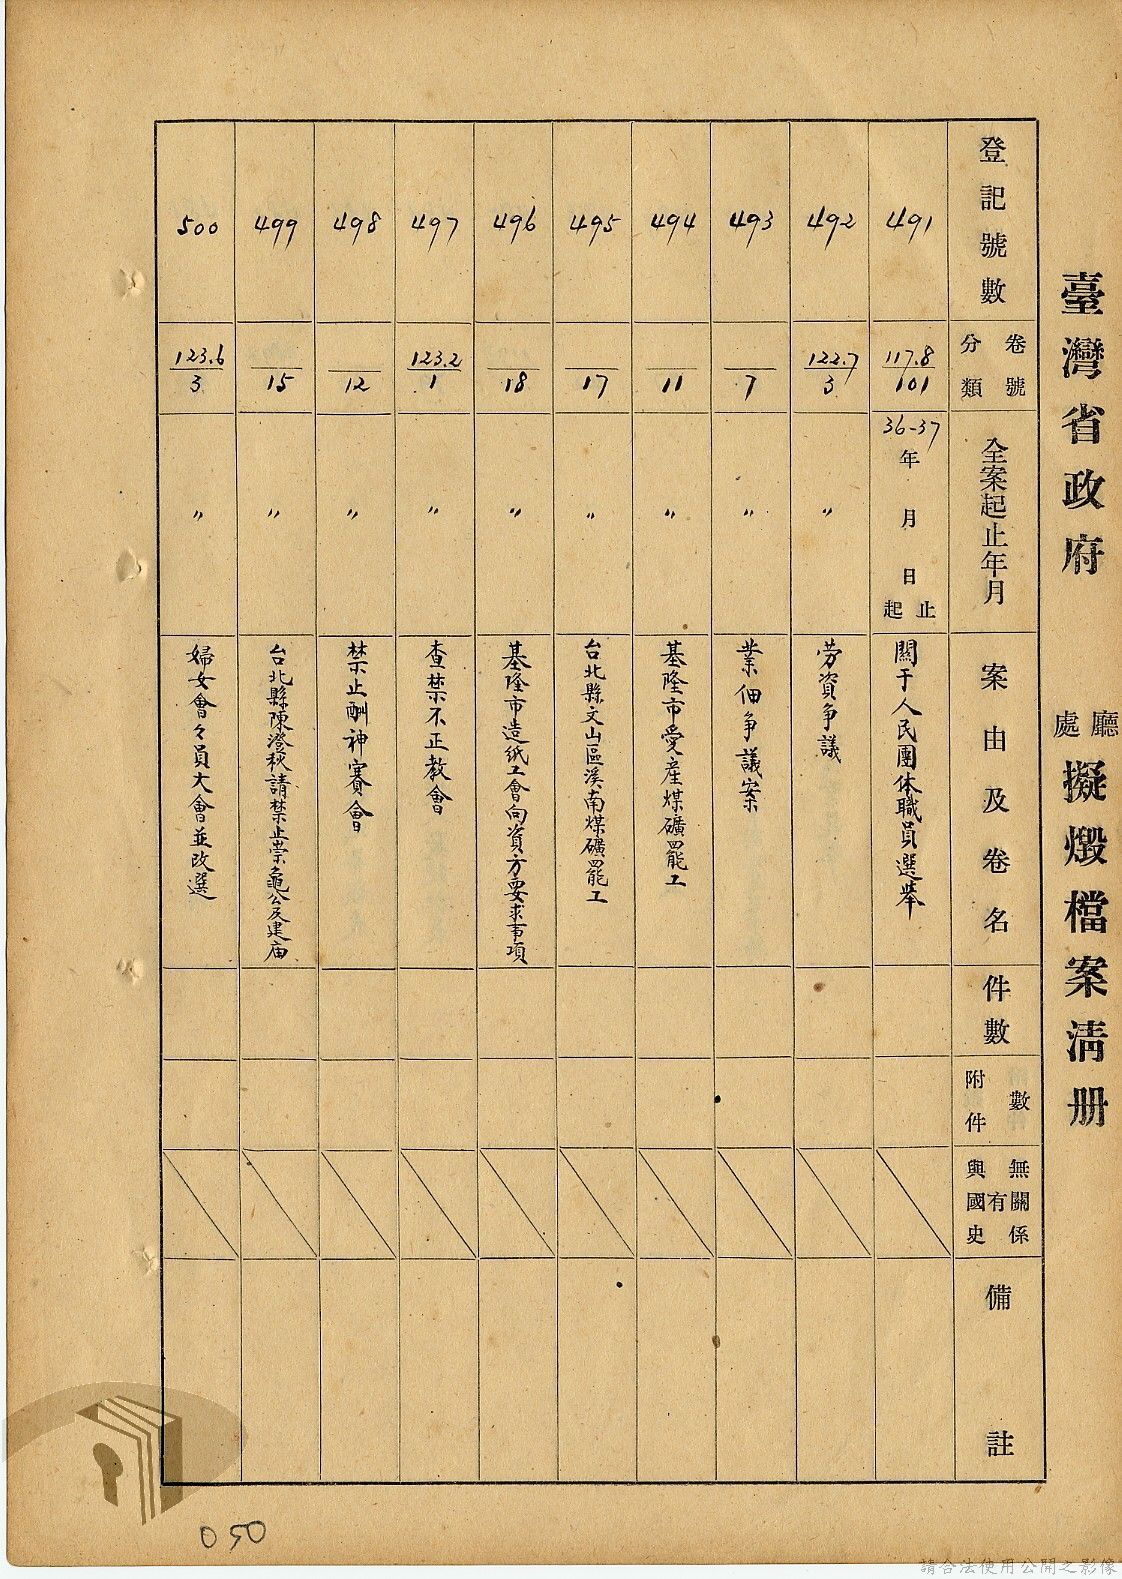 臺灣省政府 廳處 擬燬檔案清册
登記號數
分類 卷號
全案起止年月
案由及卷名
件數
附件 數
與國史 有 無關係
備註
491
117.8
101
36-37年 月 日 起止
關于人民團体職員選舉
492
122.7
3
〃
勞資爭議
493
7
〃
業佃爭議案
494
11
〃
基隆市愛產煤礦罷工
495
17
〃
台北縣文山區溪南煤礦罷工
496
18
〃
基隆市造紙工會向資方要求事項
497
123.2
1
〃
查禁不正教會
498
12
〃
禁止酬神賽會
499
15
〃
台北縣陳澄秋請禁止崇龜公及建庙
500
123.6
3
〃
婦女會々員大會並改選
050
請合法使用公開之影像